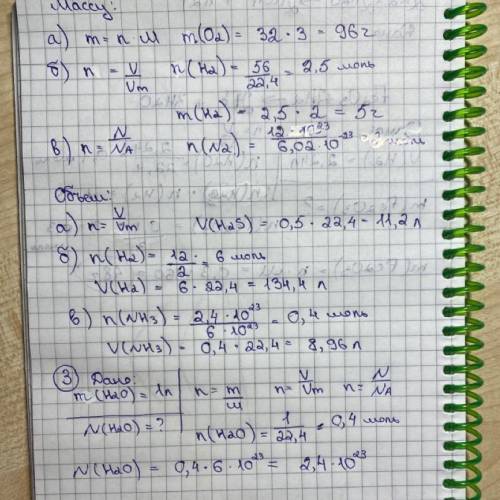 Массу:
а) m = n · M m(O2) = 32 · 3 = 96 г
б) n = V/Vm n(H2) = 56/22,4 = 2,5 моль
m(H2) = 2,5 · 2 = 5г
в) n = N/NA n(N2) = 12 · 10²³/6,02 · 10⁻²³ =
Объем:
а) n = V/Vm V(H2S) = 0,5 · 22,4 = 11,2 л
б) n(H2) = 12/2 = 6 моль
V(H2) = 6 · 22,4 = 134,4 л
в) n(NH3) = 2,4 · 10²³/6 · 10²³ = 0,4 моль
V(NH3) = 0,4 · 22,4 = 8,96 л
③ Дано:
m(H2O) = 1л n = m/M n = V/Vm n = N/NA
N(H2O) = ? n(H2O) = 1/22,4 = 0,4 моль
N(H2O) = 0,4 · 6 · 10²³ = 2,4 · 10²³